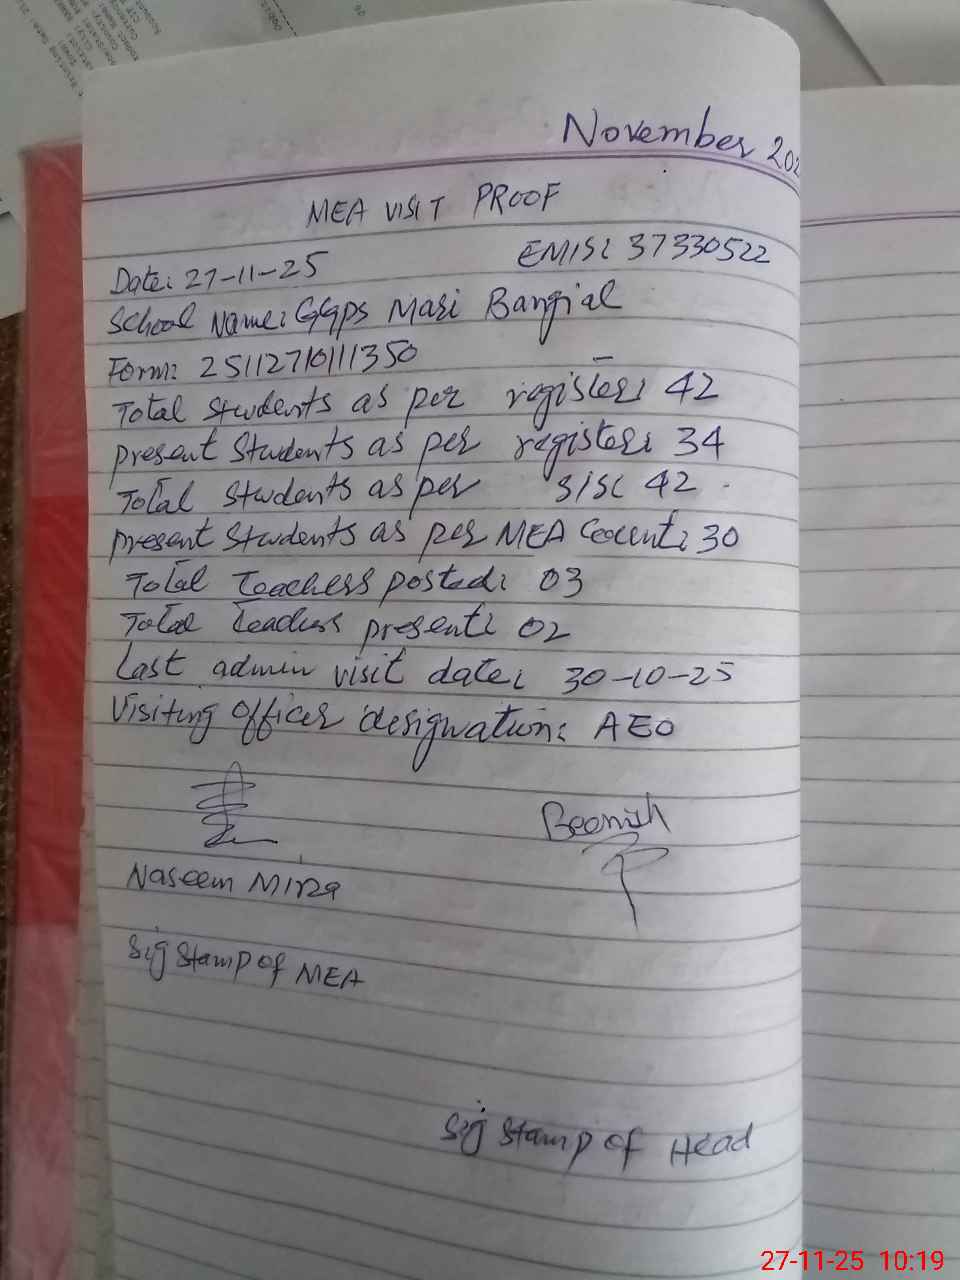 November 202
MEA VISIT PROOF
Date: 27-11-25 EMIS: 37330522
School Name: GGPS Mari Bangial
Form: 25112710111350
Total Students as per register: 42
present Students as per register: 34
Total Students as per SIS: 42
present Students as per MEA Count: 30
Total Teachers posted: 03
Total Teachers present: 02
Last admin visit date: 30-10-25
Visiting Officer designation: AEO
Beenish
Naseem Mirza
Sig Stamp of MEA
Sig Stamp of Head
27-11-25 10:19